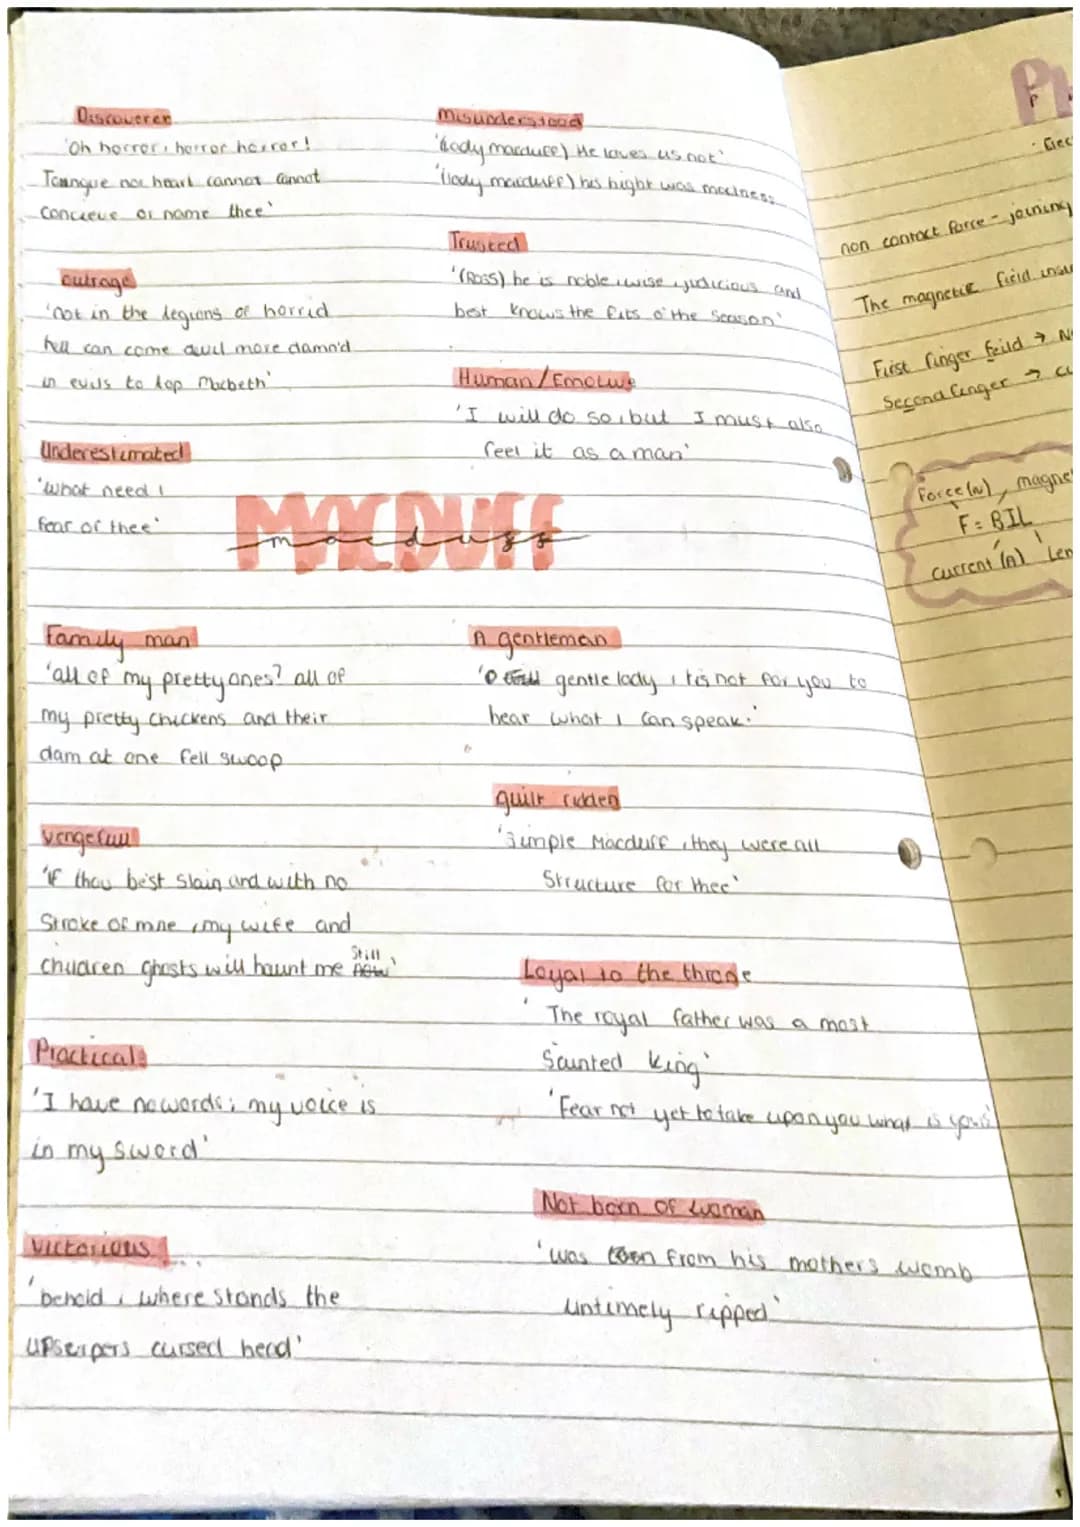 Discoverer
'Oh horror, horror horror!
Toungue nor heart cannot cannot
concieve or name thee'
outrage
'not in the legions of horrid
hell can come devil more damn'd
in evils to top Macbeth'
Underestimated
'what need I
fear of thee'
MACDUFF
macduff
Family man
'all of my pretty ones? all of
my pretty chickens and their
dam at one fell swoop
vengefull
'If thou be'st slain and with no
stroke of mine, my wife and
children ghosts will haunt me still'
Practical
'I have no words; my voice is
in my sword'
Victorious
'behold, where stands the
upserpers cursed head'
Misunderstood
'(lady macduff) He loves us not'
'(lady macduff) his flight was madness
Trusted
'(ROSS) he is noble, wise, judicious and
best knows the fits o'the season'
Human/Emotive
'I will do so, but I must also
feel it as a man'
A gentleman
'O gentle lady, tis not for you to
hear what I can speak.'
guilt ridden
'Simple Macduff, they were all
Structure for thee'
Loyal to the throne
'The royal father was a most
Sainted king'
'Fear not yet to take upon you what is yours'
Not born of woman
'was from his mothers womb
untimely ripped'
P
non contact force - joining
The magnetic field
First finger feild → 
Second finger →
Force (N), magne
F = BIL
current (A) Len